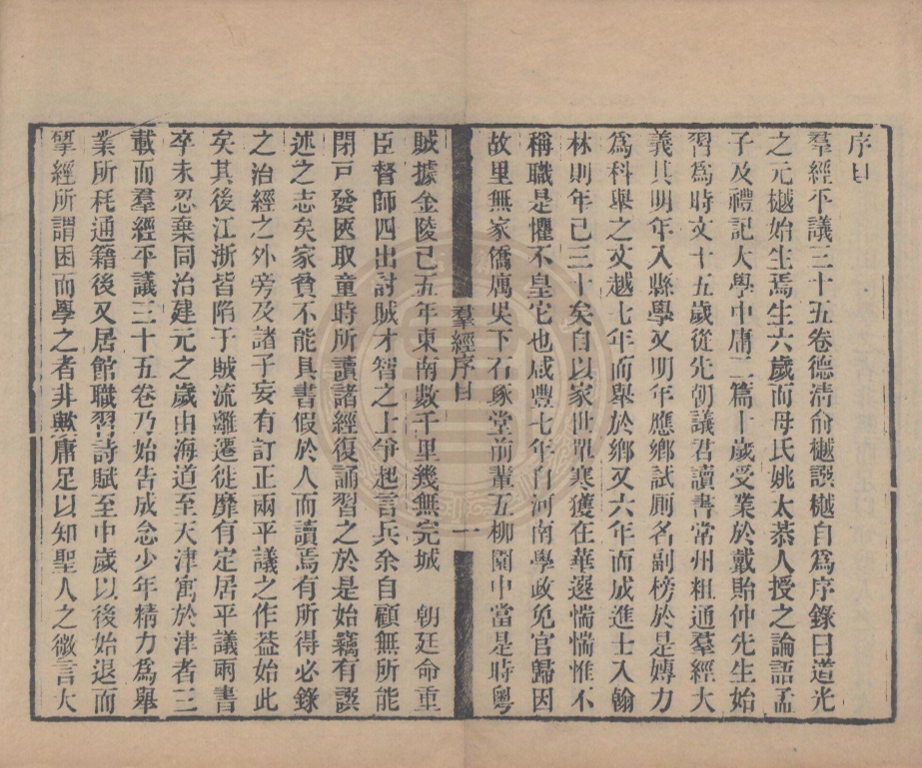 序目
羣經平議三十五卷德清俞樾譔樾自爲序錄曰道光
之元樾始生焉生六歲而母氏姚太恭人授之論語孟
子及禮記大學中庸二篇十歲受業於戴貽仲先生始
習爲時文十五歲從先朝議君讀書常州粗通羣經大
義其明年入縣學又明年應鄉試厠名副榜於是嫥力
爲科舉之文越七年而舉於鄉又六年而成進士入翰
林則年已三十矣自以家世單寒獲在華選惴惴惟不
稱職是懼不皇它也咸豐七年自河南學政免官歸因
故里無家僑厲吳下石琢堂前輩五柳園中當是時粵
羣經序目
一
賊據金陵已五年東南數千里幾無完城　朝廷命重
臣督師四出討賊才智之士爭起言兵余自顧無所能
閉戸發匧取童時所讀諸經復誦習之於是始竊有譔
述之志矣家貧不能具書假於人而讀焉有所得必錄
之治經之外旁及諸子妄有訂正兩平議之作葢始此
矣其後江浙皆陷于賊流離遷徙靡有定居平議兩書
卒未忍棄同治建元之歲由海道至天津寓於津者三
載而羣經平議三十五卷乃始告成念少年精力爲舉
業所耗通籍後又居館職習詩賦至中歲以後始退而
揅經所謂困而學之者非歟庸足以知聖人之微言大